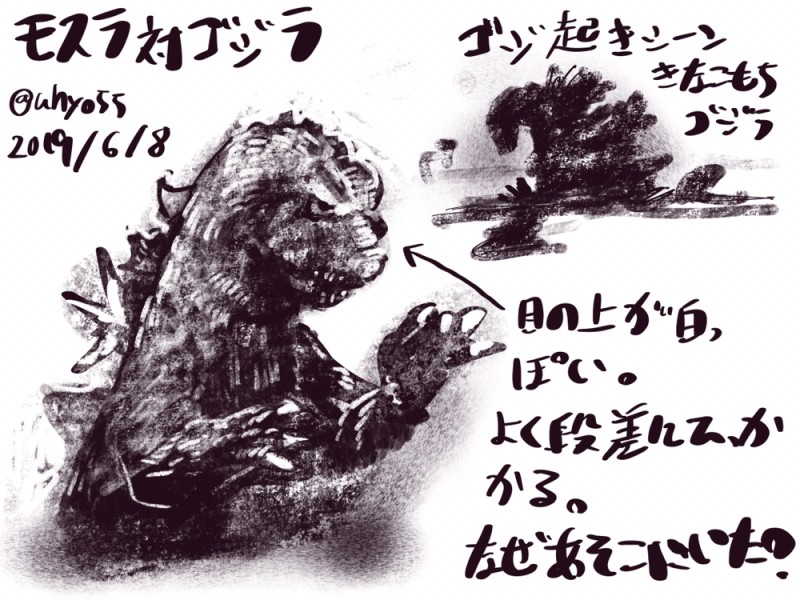 モスラ対ゴジラ
@uhyo55
2019/6/8
ゴジ起きシーン
きなこもち
ゴジラ
目の上が白っ
ぽい。
よく段差にひっか
かる。
なぜあそこにいた?